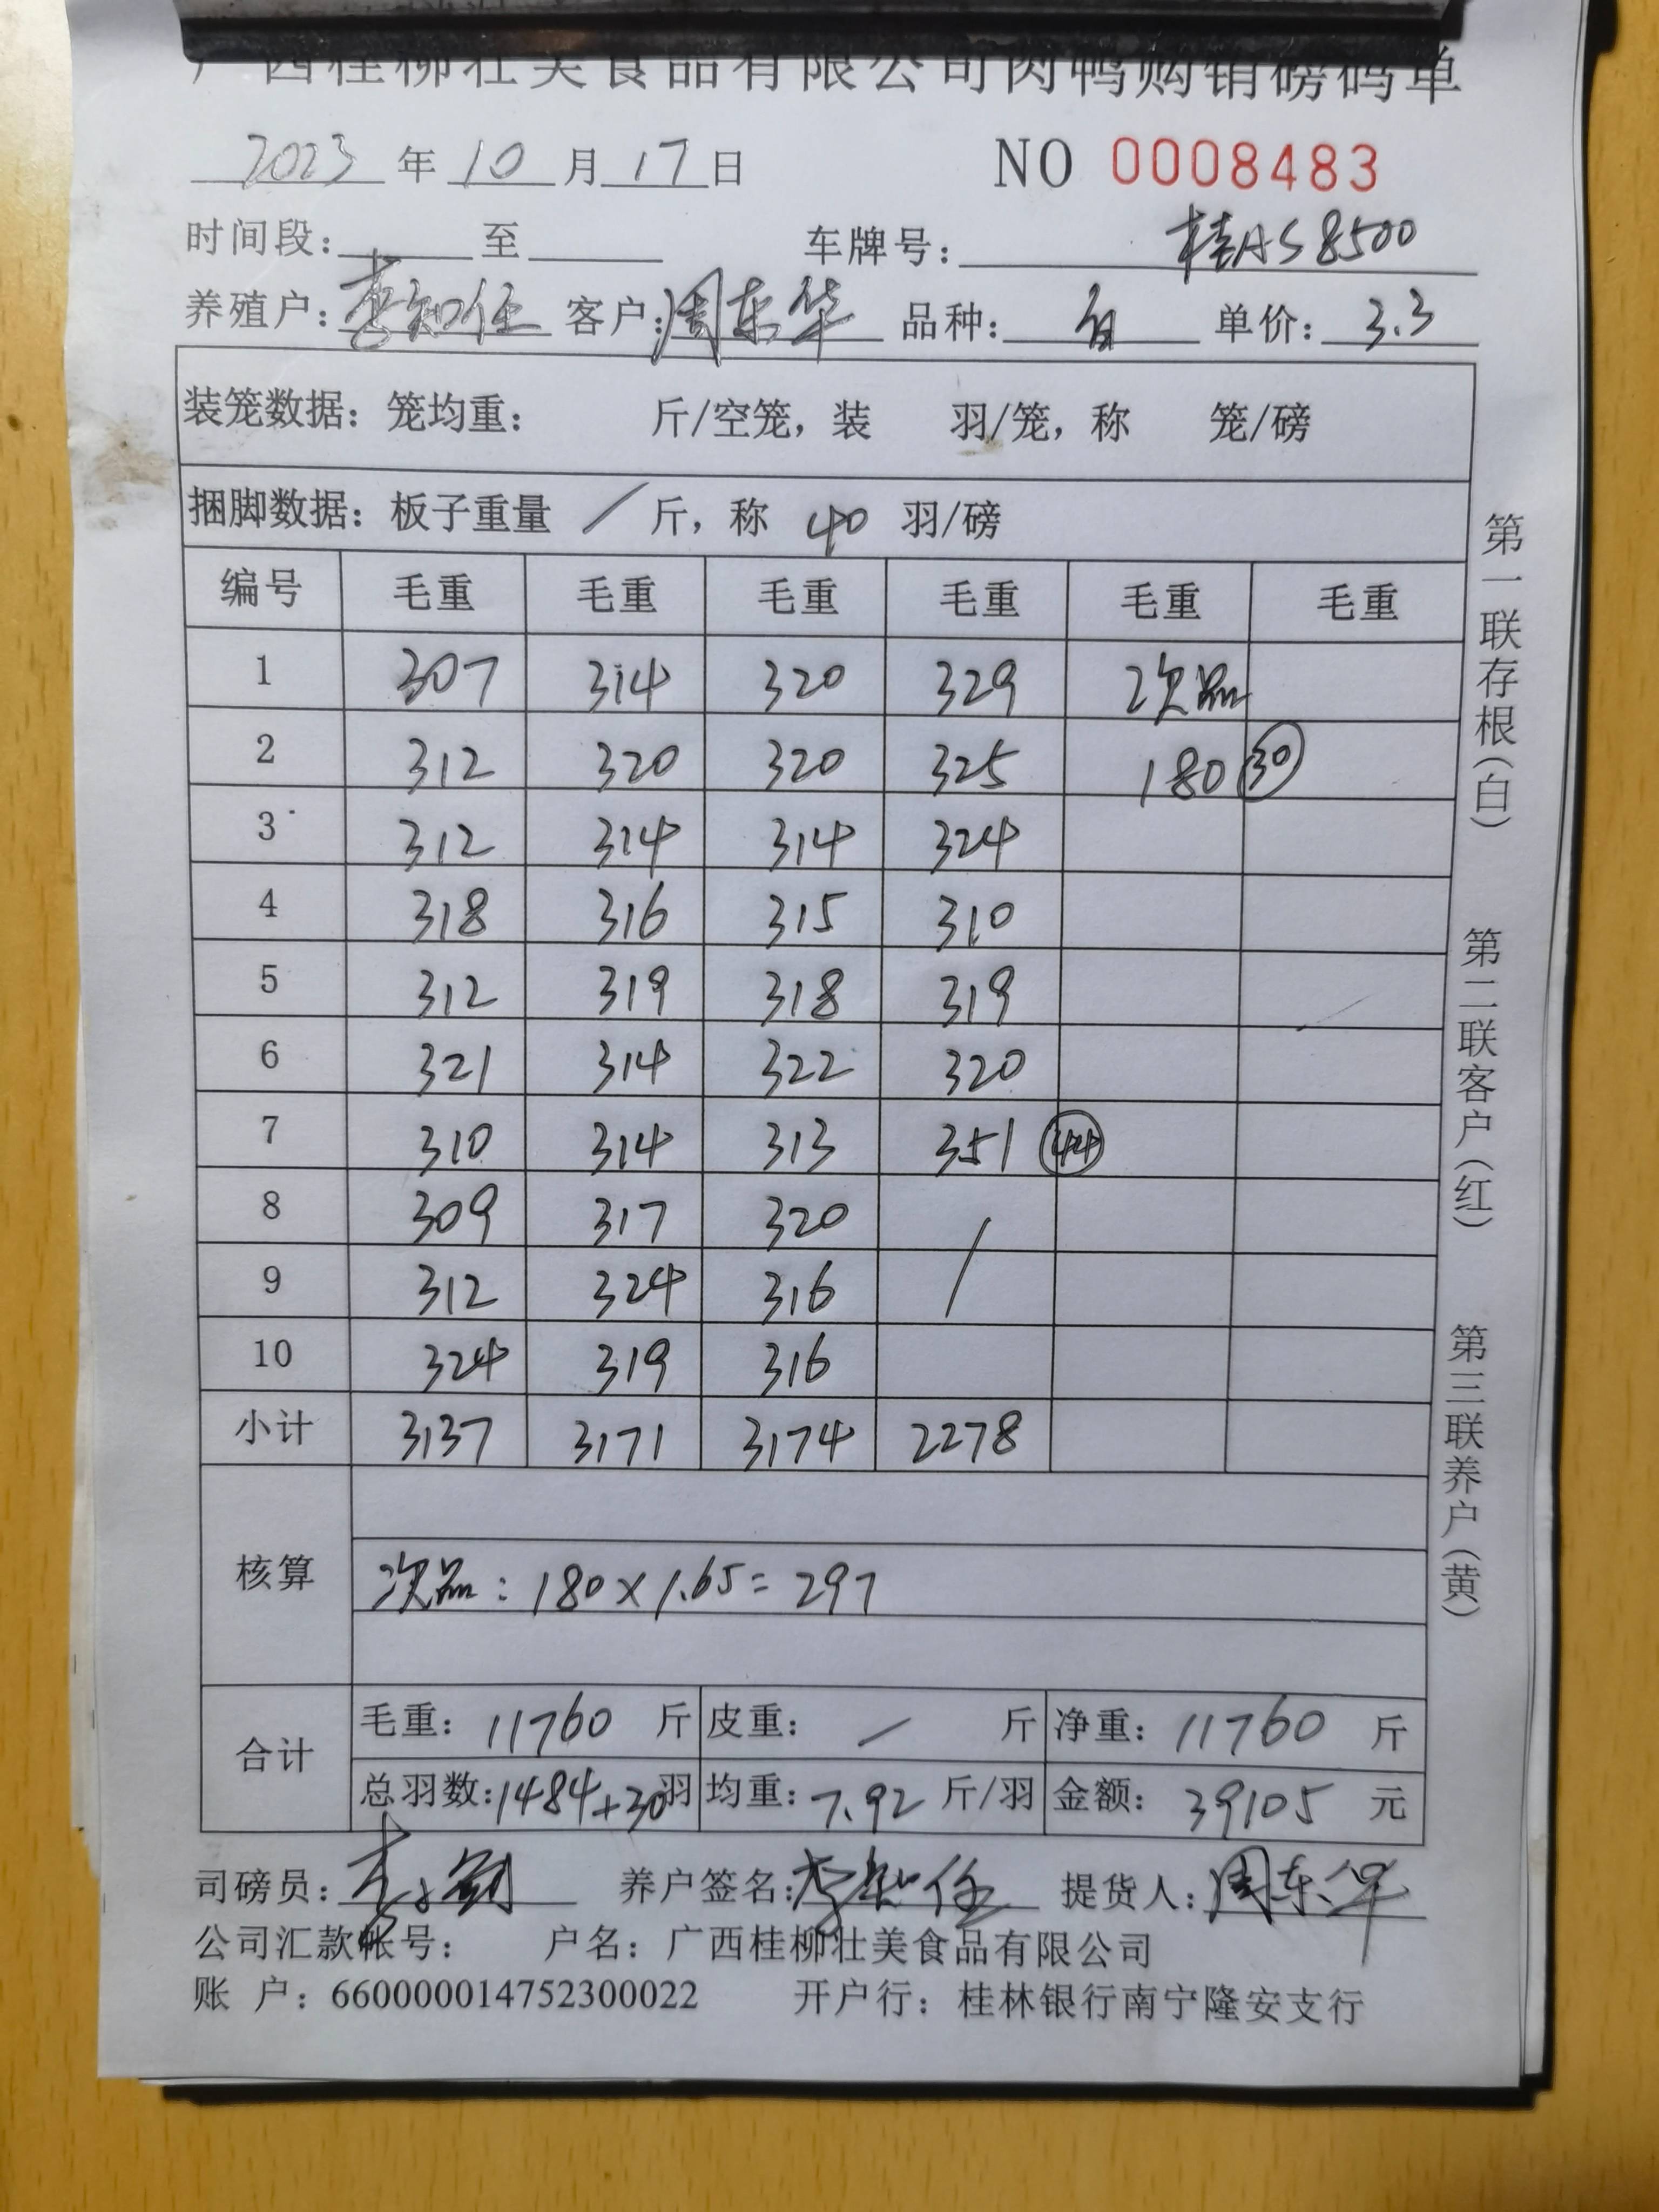 广西桂柳壮美食品有限公司肉鸭购销磅码单
2023 年 10 月 17 日 NO 0008483
时间段： 至 车牌号： 桂AS8500
养殖户：李知任 客户：周东华 品种： 白 单价： 3.3
装笼数据：笼均重： 斤/空笼，装 羽/笼，称 笼/磅
捆脚数据：板子重量 / 斤，称 40 羽/磅
编号 毛重 毛重 毛重 毛重 毛重 毛重
1 307 314 320 329 次品
2 312 320 320 325 180 30
3 312 314 314 324
4 318 316 315 310
5 312 319 318 319
6 321 314 322 320
7 310 314 313 351 44
8 309 317 320 /
9 312 324 316
10 324 319 316
小计 3137 3171 3174 2278
核算
次品：180×1.65=297
合计
毛重：11760 斤 皮重： / 斤 净重：11760 斤
总羽数：1484+30羽 均重：7.92 斤/羽 金额： 39105 元
司磅员： 养户签名：李知任 提货人：周东华
公司汇款帐号： 户名：广西桂柳壮美食品有限公司
账 户：660000014752300022 开户行：桂林银行南宁隆安支行
第一联存根（白）
第二联客户（红）
第三联养户（黄）